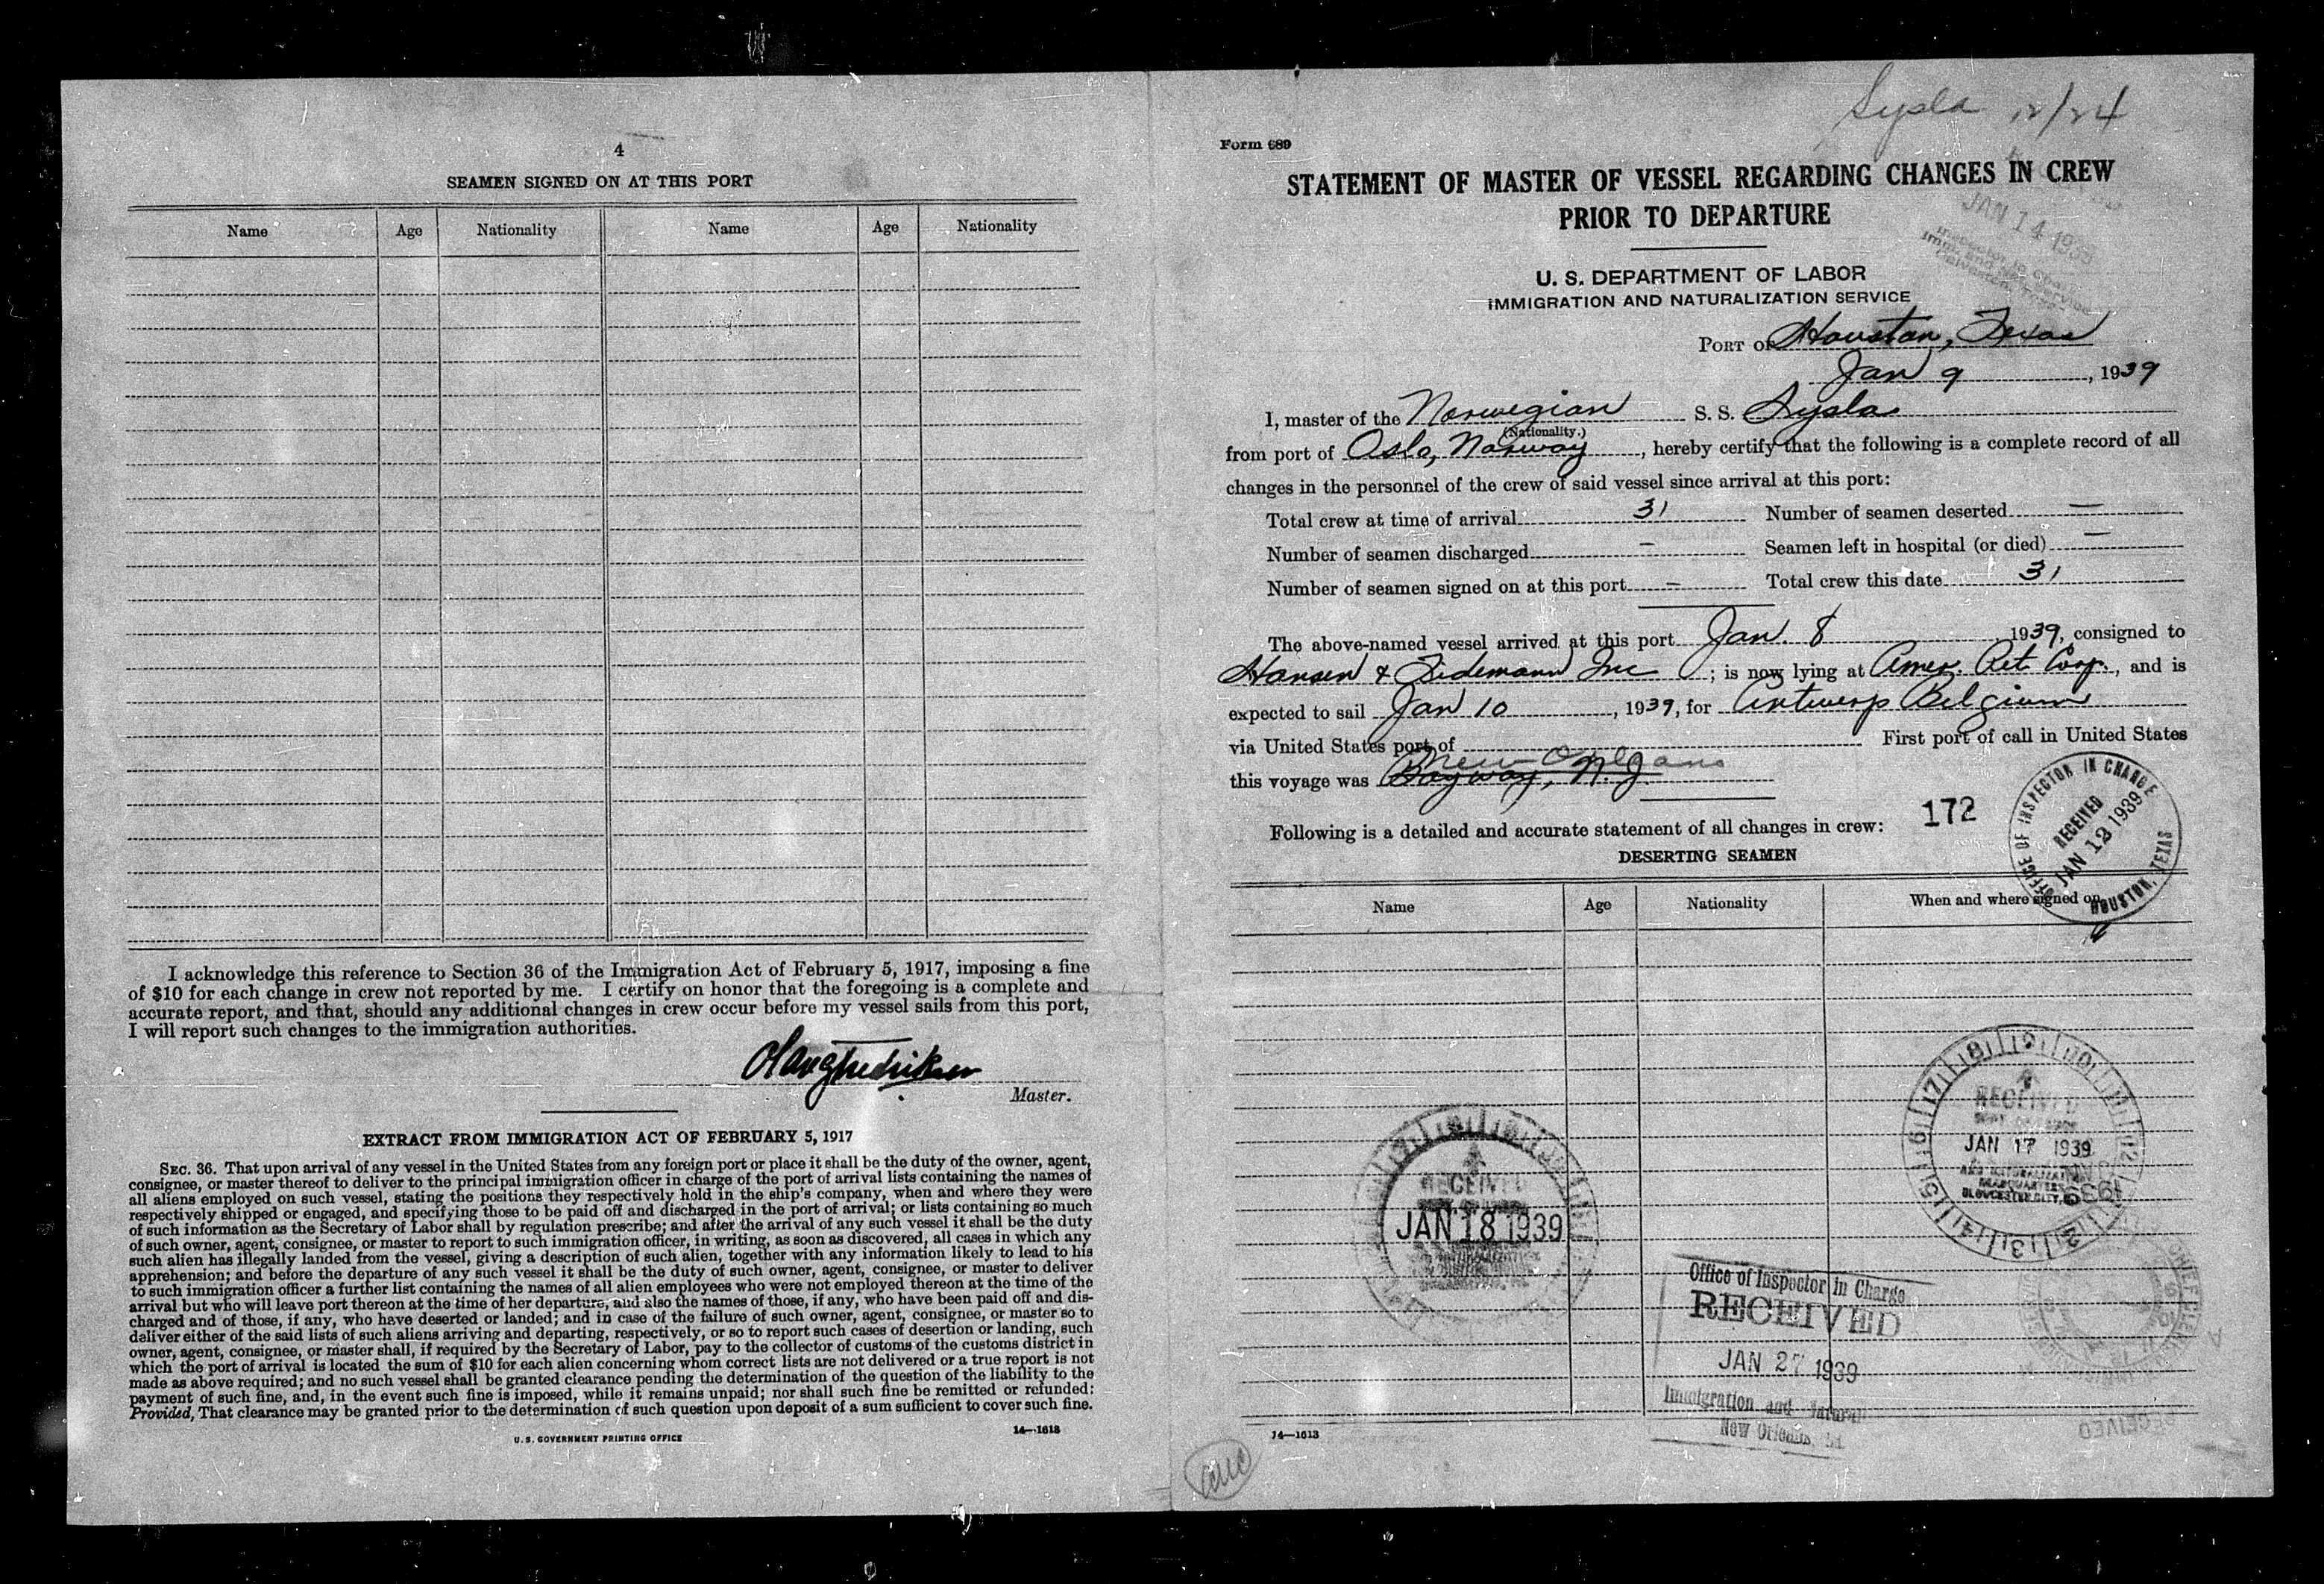 4
SEAMEN SIGNED ON AT THIS PORT
Name Age Nationality Name Age Nationality
I acknowledge this reference to Section 36 of the Immigration Act of February 5, 1917, imposing a fine
of $10 for each change in crew not reported by me. I certify on honor that the foregoing is a complete and
accurate report, and that, should any additional changes in crew occur before my vessel sails from this port,
I will report such changes to the immigration authorities.
Master.
EXTRACT FROM IMMIGRATION ACT OF FEBRUARY 5, 1917
SEC. 36. That upon arrival of any vessel in the United States from any foreign port or place it shall be the duty of the owner, agent,
consignee, or master thereof to deliver to the principal immigration officer in charge of the port of arrival lists containing the names of
all aliens employed on such vessel, stating the positions they respectively hold in the ship's company, when and where they were
respectively shipped or engaged, and specifying those to be paid off and discharged in the port of arrival; or lists containing so much
of such information as the Secretary of Labor shall by regulation prescribe; and after the arrival of any such vessel it shall be the duty
of such owner, agent, consignee, or master to report to such immigration officer, in writing, as soon as discovered, all cases in which any
such alien has illegally landed from the vessel, giving a description of such alien, together with any information likely to lead to his
apprehension; and before the departure of any such vessel it shall be the duty of such owner, agent, consignee, or master to deliver
to such immigration officer a further list containing the names of all alien employees who were not employed thereon at the time of the
arrival but who will leave port thereon at the time of her departure, and also the names of those, if any, who have been paid off and dis-
charged and of those, if any, who have deserted or landed; and in case of the failure of such owner, agent, consignee, or master so to
deliver either of the said lists of such aliens arriving and departing, respectively, or so to report such cases of desertion or landing, such
owner, agent, consignee, or master shall, if required by the Secretary of Labor, pay to the collector of customs of the customs district in
which the port of arrival is located the sum of $10 for each alien concerning whom correct lists are not delivered or a true report is not
made as above required; and no such vessel shall be granted clearance pending the determination of the question of the liability to the
payment of such fine, and, in the event such fine is imposed, while it remains unpaid; nor shall such fine be remitted or refunded:
Provided, That clearance may be granted prior to the determination of such question upon deposit of a sum sufficient to cover such fine.
U. S. GOVERNMENT PRINTING OFFICE 14—1613
Sysla 12/24
Form 689
STATEMENT OF MASTER OF VESSEL REGARDING CHANGES IN CREW
PRIOR TO DEPARTURE
JAN 14 1939
U. S. DEPARTMENT OF LABOR
IMMIGRATION AND NATURALIZATION SERVICE
PORT OF Houston, Texas
Jan 9, 1939
I, master of the Norwegian S. S. Sysla
(Nationality.)
from port of Oslo, Norway, hereby certify that the following is a complete record of all
changes in the personnel of the crew of said vessel since arrival at this port:
Total crew at time of arrival 31 Number of seamen deserted —
Number of seamen discharged — Seamen left in hospital (or died) —
Number of seamen signed on at this port — Total crew this date 31
The above-named vessel arrived at this port Jan. 8 1939, consigned to
Hansen & Tidemann Inc; is now lying at Amer. Pet. Corp., and is
expected to sail Jan 10, 1939, for Antwerp Belgium
via United States port of First port of call in United States
New Orleans
this voyage was Bayway, N.J.
172
Following is a detailed and accurate statement of all changes in crew:
OFFICE OF INSPECTOR IN CHARGE
RECEIVED
JAN 12 1939
HOUSTON, TEXAS
DESERTING SEAMEN
Name Age Nationality When and where signed on
RECEIVED
JAN 17 1939
GLOUCESTER CITY,
RECEIVED
JAN 18 1939
Office of Inspector in Charge
RECEIVED
JAN 27 1939
Immigration and
New Orleans, La.
14—1613